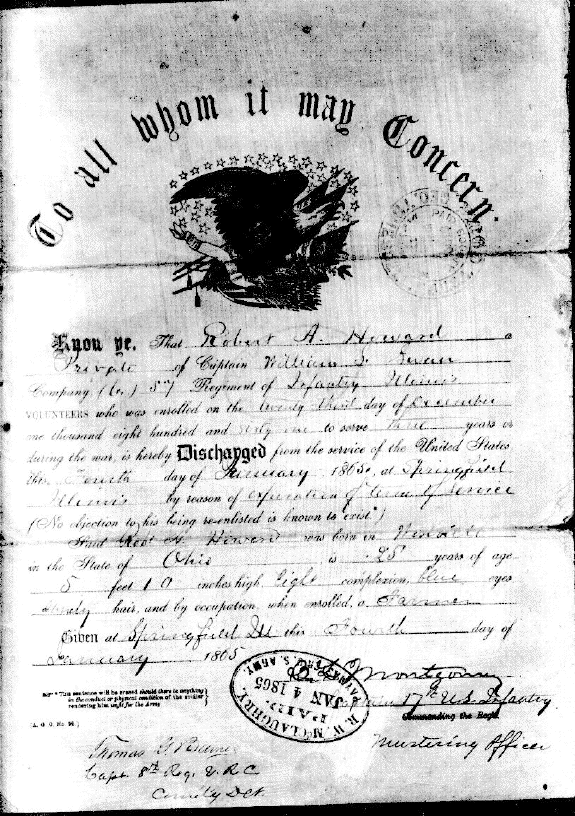 To all whom it may Concern.
Know ye, That Robert A. Howard a
Private of Captain William S. Swan
Company (G.) 57 Regiment of Infantry Illinois
VOLUNTEERS who was enrolled on the twenty third day of December
one thousand eight hundred and sixty one to serve three years or
during the war, is hereby Discharged from the service of the United States
this Fourth day of January 1865, at Springfield
Illinois by reason of expiration of term of service
(No objection to his being re-enlisted is known to exist*)
Said Robt A. Howard was born in
in the State of Ohio is 25 years of age
5 feet 10 inches high light complexion, blue eyes
Sandy hair, and by occupation, when enrolled, a Farmer
Given at Springfield Ill this Fourth day of
January 1865
R. W. McCLAUGHRY
PAID
JAN 4 1865
PAYMASTER, U. S. ARMY.
Montgomery
Captain 17th U.S. Infantry
Commanding the Regt.
Mustering Officer
*This sentence will be erased should there be anything
in the conduct or physical condition of the soldier
rendering him unfit for the Army
[A. G. O. No. 99.]
Thomas
Capt. 8th Reg. V. R. C